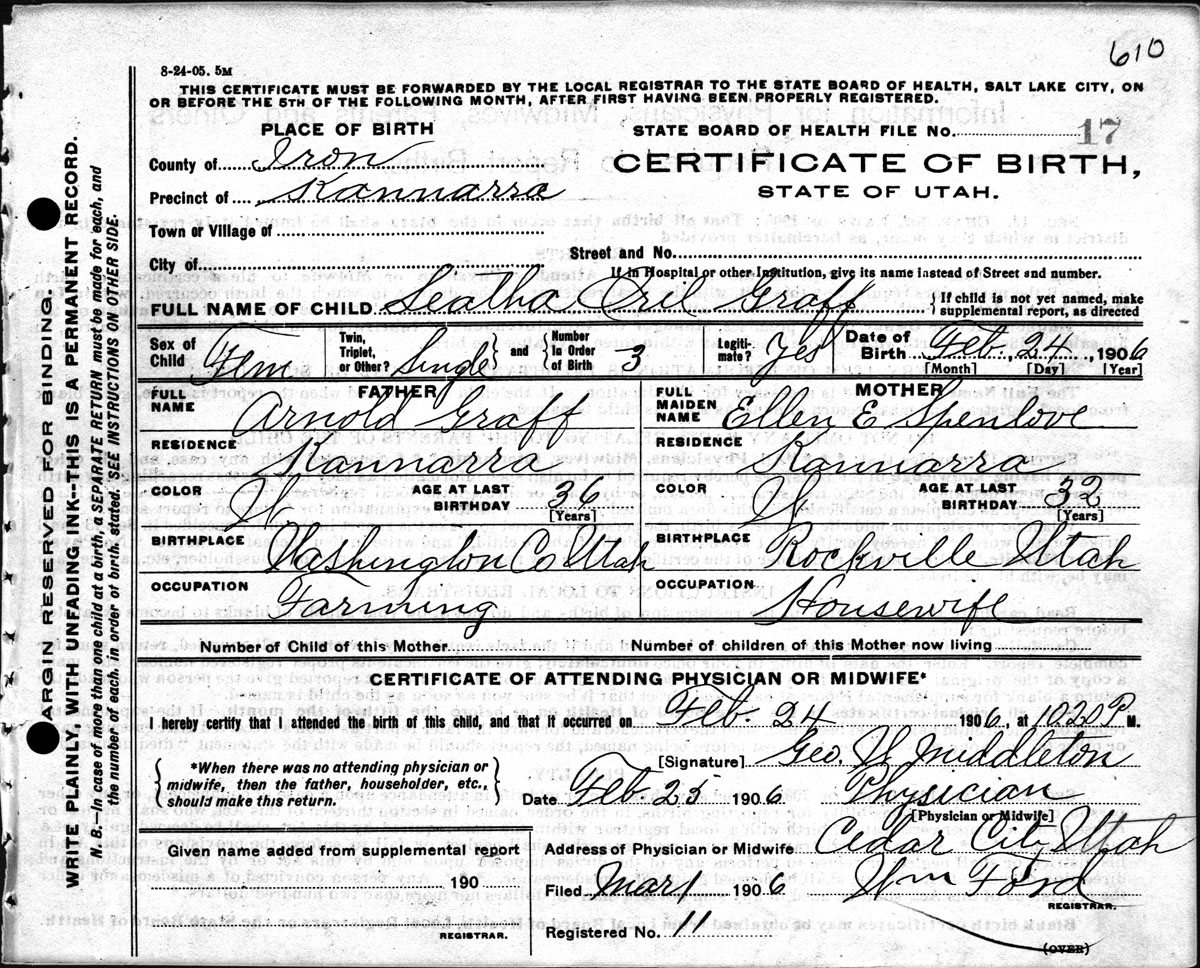 610
8-24-05. 5M
THIS CERTIFICATE MUST BE FORWARDED BY THE LOCAL REGISTRAR TO THE STATE BOARD OF HEALTH, SALT LAKE CITY, ON
OR BEFORE THE 5TH OF THE FOLLOWING MONTH, AFTER FIRST HAVING BEEN PROPERLY REGISTERED.
PLACE OF BIRTH
STATE BOARD OF HEALTH FILE NO. 17
County of Iron
CERTIFICATE OF BIRTH,
Precinct of Kannarra
STATE OF UTAH.
Town or Village of
Street and No.
City of
If in Hospital or other Institution, give its name instead of Street and number.
FULL NAME OF CHILD Leatha Oril Graff { If child is not yet named, make
supplemental report, as directed
Sex of Child Fem Twin, Triplet, or Other? Single and { Number in Order of Birth 3 Legiti-mate? Yes Date of Birth Feb. 24, 1906
[Month] [Day] [Year]
FATHER MOTHER
FULL NAME Arnold Graff FULL MAIDEN NAME Ellen E Spenlove
RESIDENCE Kannarra RESIDENCE Kannarra
COLOR W AGE AT LAST BIRTHDAY 36 [Years] COLOR W AGE AT LAST BIRTHDAY 32 [Years]
BIRTHPLACE Washington Co Utah BIRTHPLACE Rockville Utah
OCCUPATION Farming OCCUPATION Housewife
Number of Child of this Mother Number of children of this Mother now living
CERTIFICATE OF ATTENDING PHYSICIAN OR MIDWIFE*
I hereby certify that I attended the birth of this child, and that it occurred on Feb. 24 1906, at 1020 P M.
{ *When there was no attending physician or
midwife, then the father, householder, etc.,
should make this return. }
[Signature] Geo. W Middleton
Date Feb 25 1906 Physician
[Physician or Midwife]
Given name added from supplemental report
190
REGISTRAR.
Address of Physician or Midwife Cedar City Utah
Filed Mar 1 1906 Wm Ford
REGISTRAR.
Registered No. 11
(OVER)
MARGIN RESERVED FOR BINDING.
WRITE PLAINLY, WITH UNFADING INK--THIS IS A PERMANENT RECORD.
N. B.--In case of more than one child at a birth a SEPARATE RETURN must be made for each, and
the number of each, in order of birth, stated. SEE INSTRUCTIONS ON OTHER SIDE.